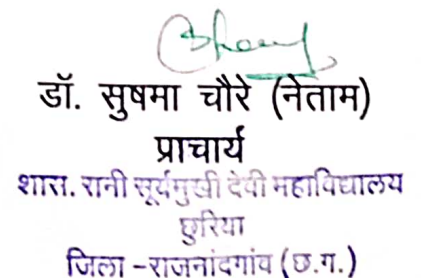 डॉ. सुषमा चौरे (नेताम)
प्राचार्य
शास. रानी सूर्यमुखी देवी महाविद्यालय
छुरिया
जिला -राजनांदगांव (छ.ग.)